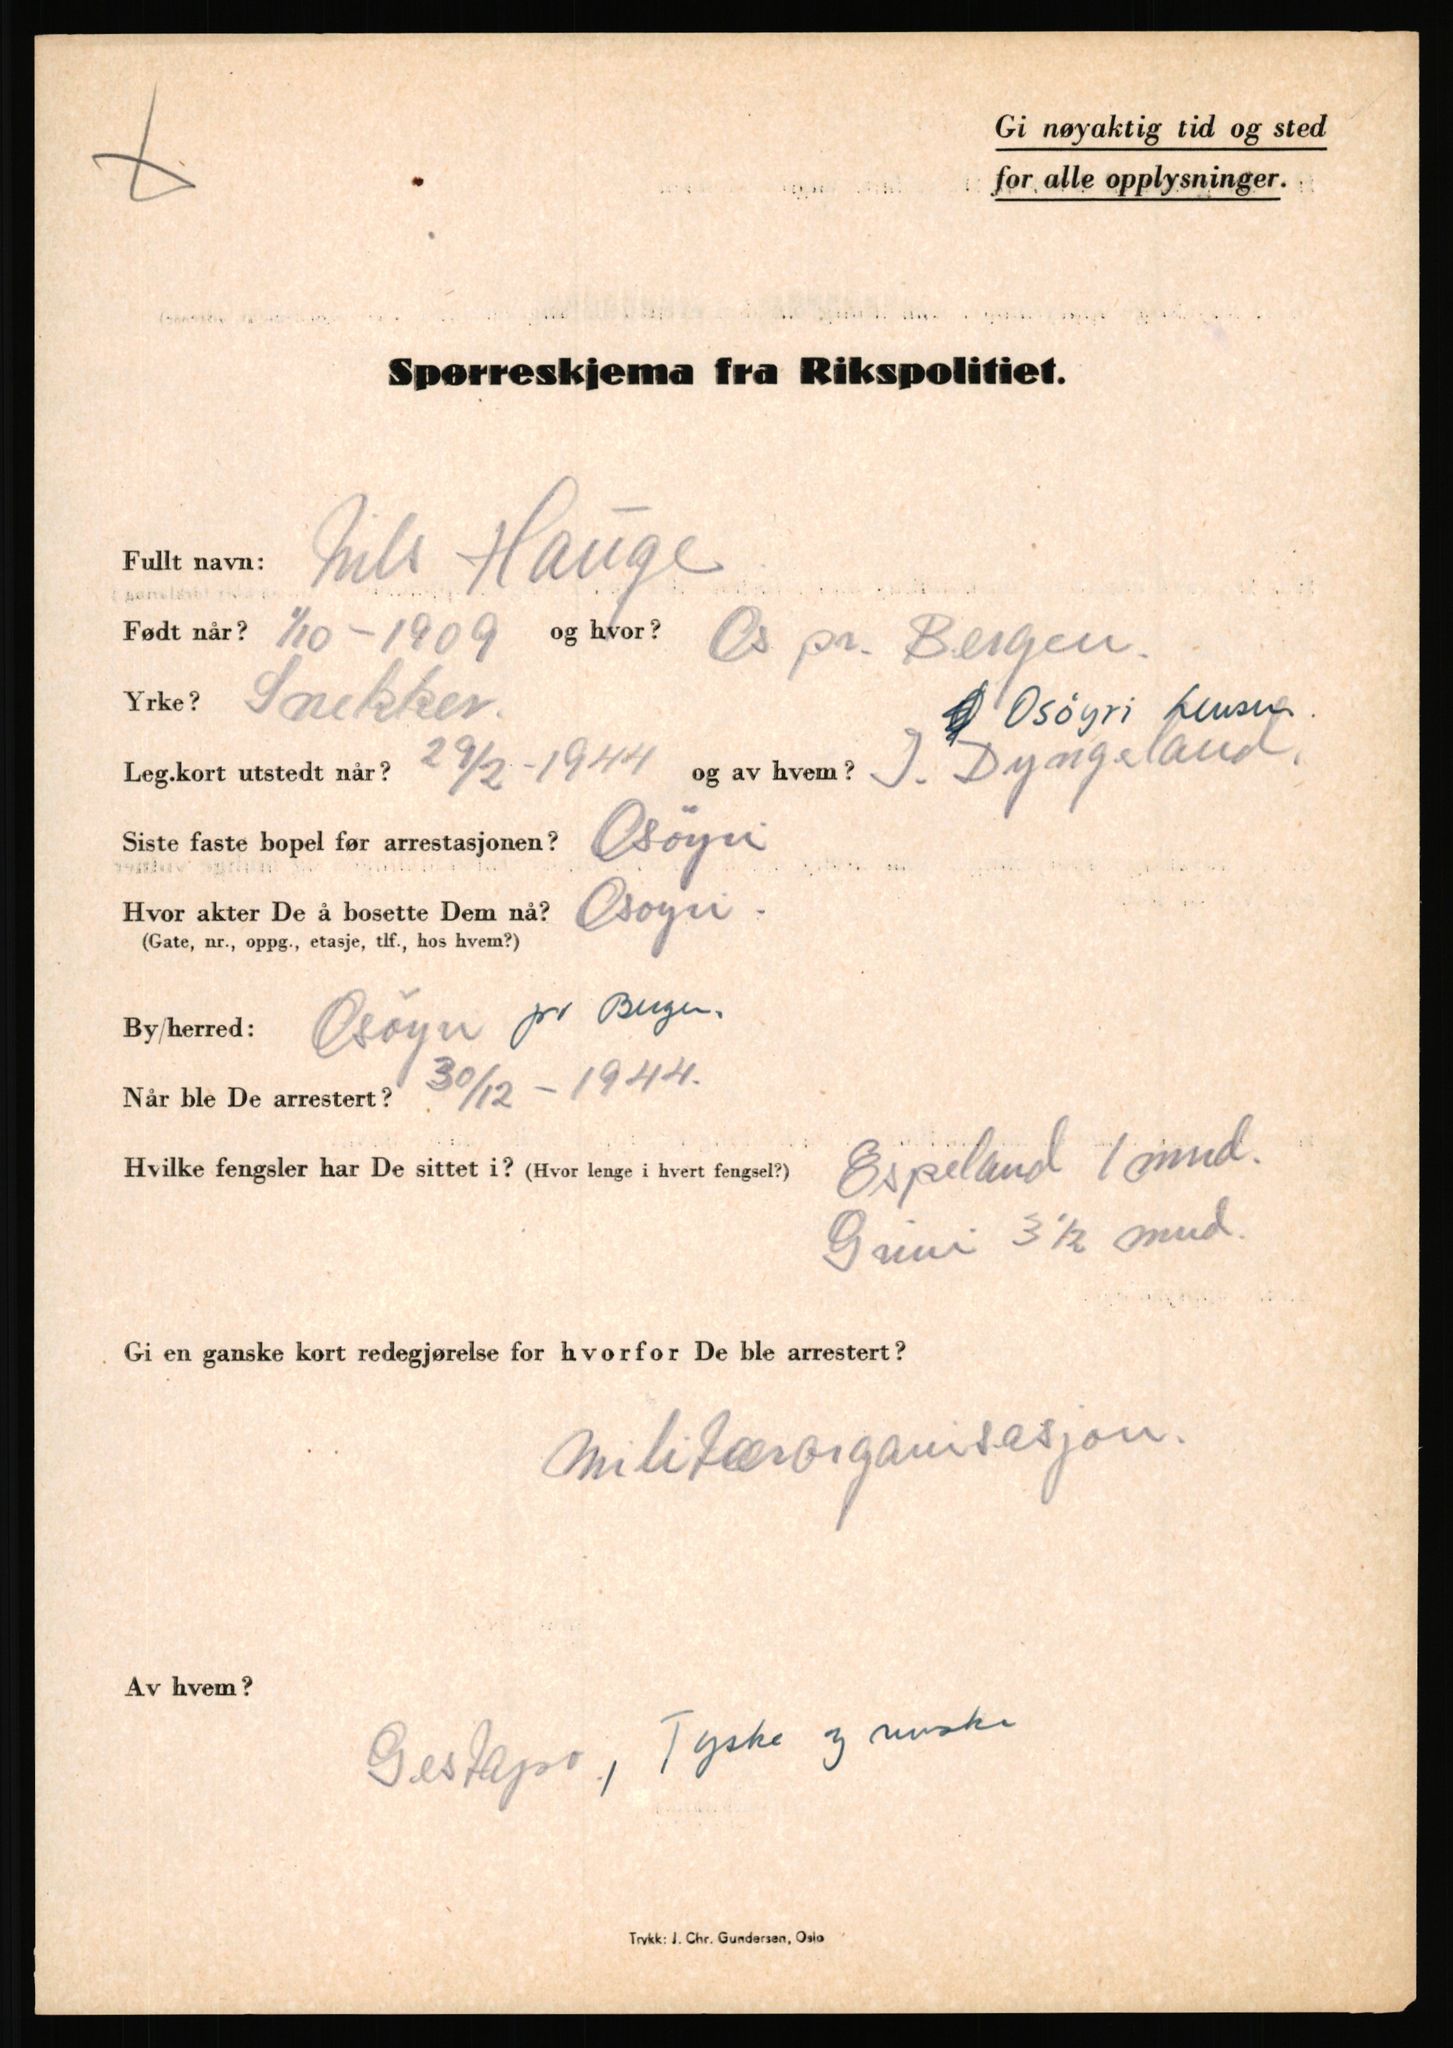 Gi nøyaktig tid og sted
for alle opplysninger.
Spørreskjema fra Rikspolitiet.
Fullt navn: Nils Hauge
Født når? 1/10 - 1909 og hvor? Os pr. Bergen.
Yrke? Snekker.
Osöyri
Leg.kort utstedt når? 29/2 - 1944 og av hvem? J. Dyngeland.
Siste faste bopel før arrestasjonen? Osöyri
Hvor akter De å bosette Dem nå? Osoyri.
(Gate, nr., oppg., etasje, tlf., hos hvem?)
By/herred: Osöyri pr Bergen.
Når ble De arrestert? 30/12 - 1944.
Hvilke fengsler har De sittet i? (Hvor lenge i hvert fengsel?) Espeland 1 mnd.
Grini 3 1/2 mnd.
Gi en ganske kort redegjørelse for hvorfor De ble arrestert?
Militærorganisasjon.
Av hvem?
Gestapo, Tyske og norske
Trykk: J. Chr. Gundersen, Oslo